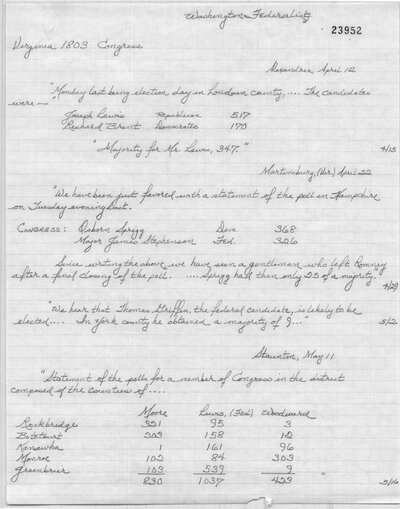 Washington Federalist
23952
Virginia 1803 Congress
Alexandria, April 12
"Monday last being election day in Loudoun county, .... The candidates
were —
Joseph Lewis Republican 517
Richard Brent Democratic 170
"Majority for Mr. Lewis, 347." 4/15
Martinsburg, (Vir.) April 22
"We have been just favored with a statement of the poll in Hampshire
on Tuesday evening last.
Congress: Osborn Sprigg Dem. 368
Major James Stephenson Fed. 326
Since writing the above, we have seen a gentleman who left Romney
after a final closing of the poll. .... Sprigg had then only 25 of a majority."
4/29
"We hear that Thomas Griffin, the federal candidate, is likely to be
elected .... In York county he obtained a majority of 9..." 5/2
Staunton, May 11
"Statement of the polls for a member of Congress in the district
composed of the counties of ....
Moore Lewis, (Fed) Woodward
Rockbridge 321 95 3
Botetourt 303 158 12
Kanawha 1 161 96
Monroe 102 84 303
Greenbrier 103 539 9 "
830 1037 423 5/16